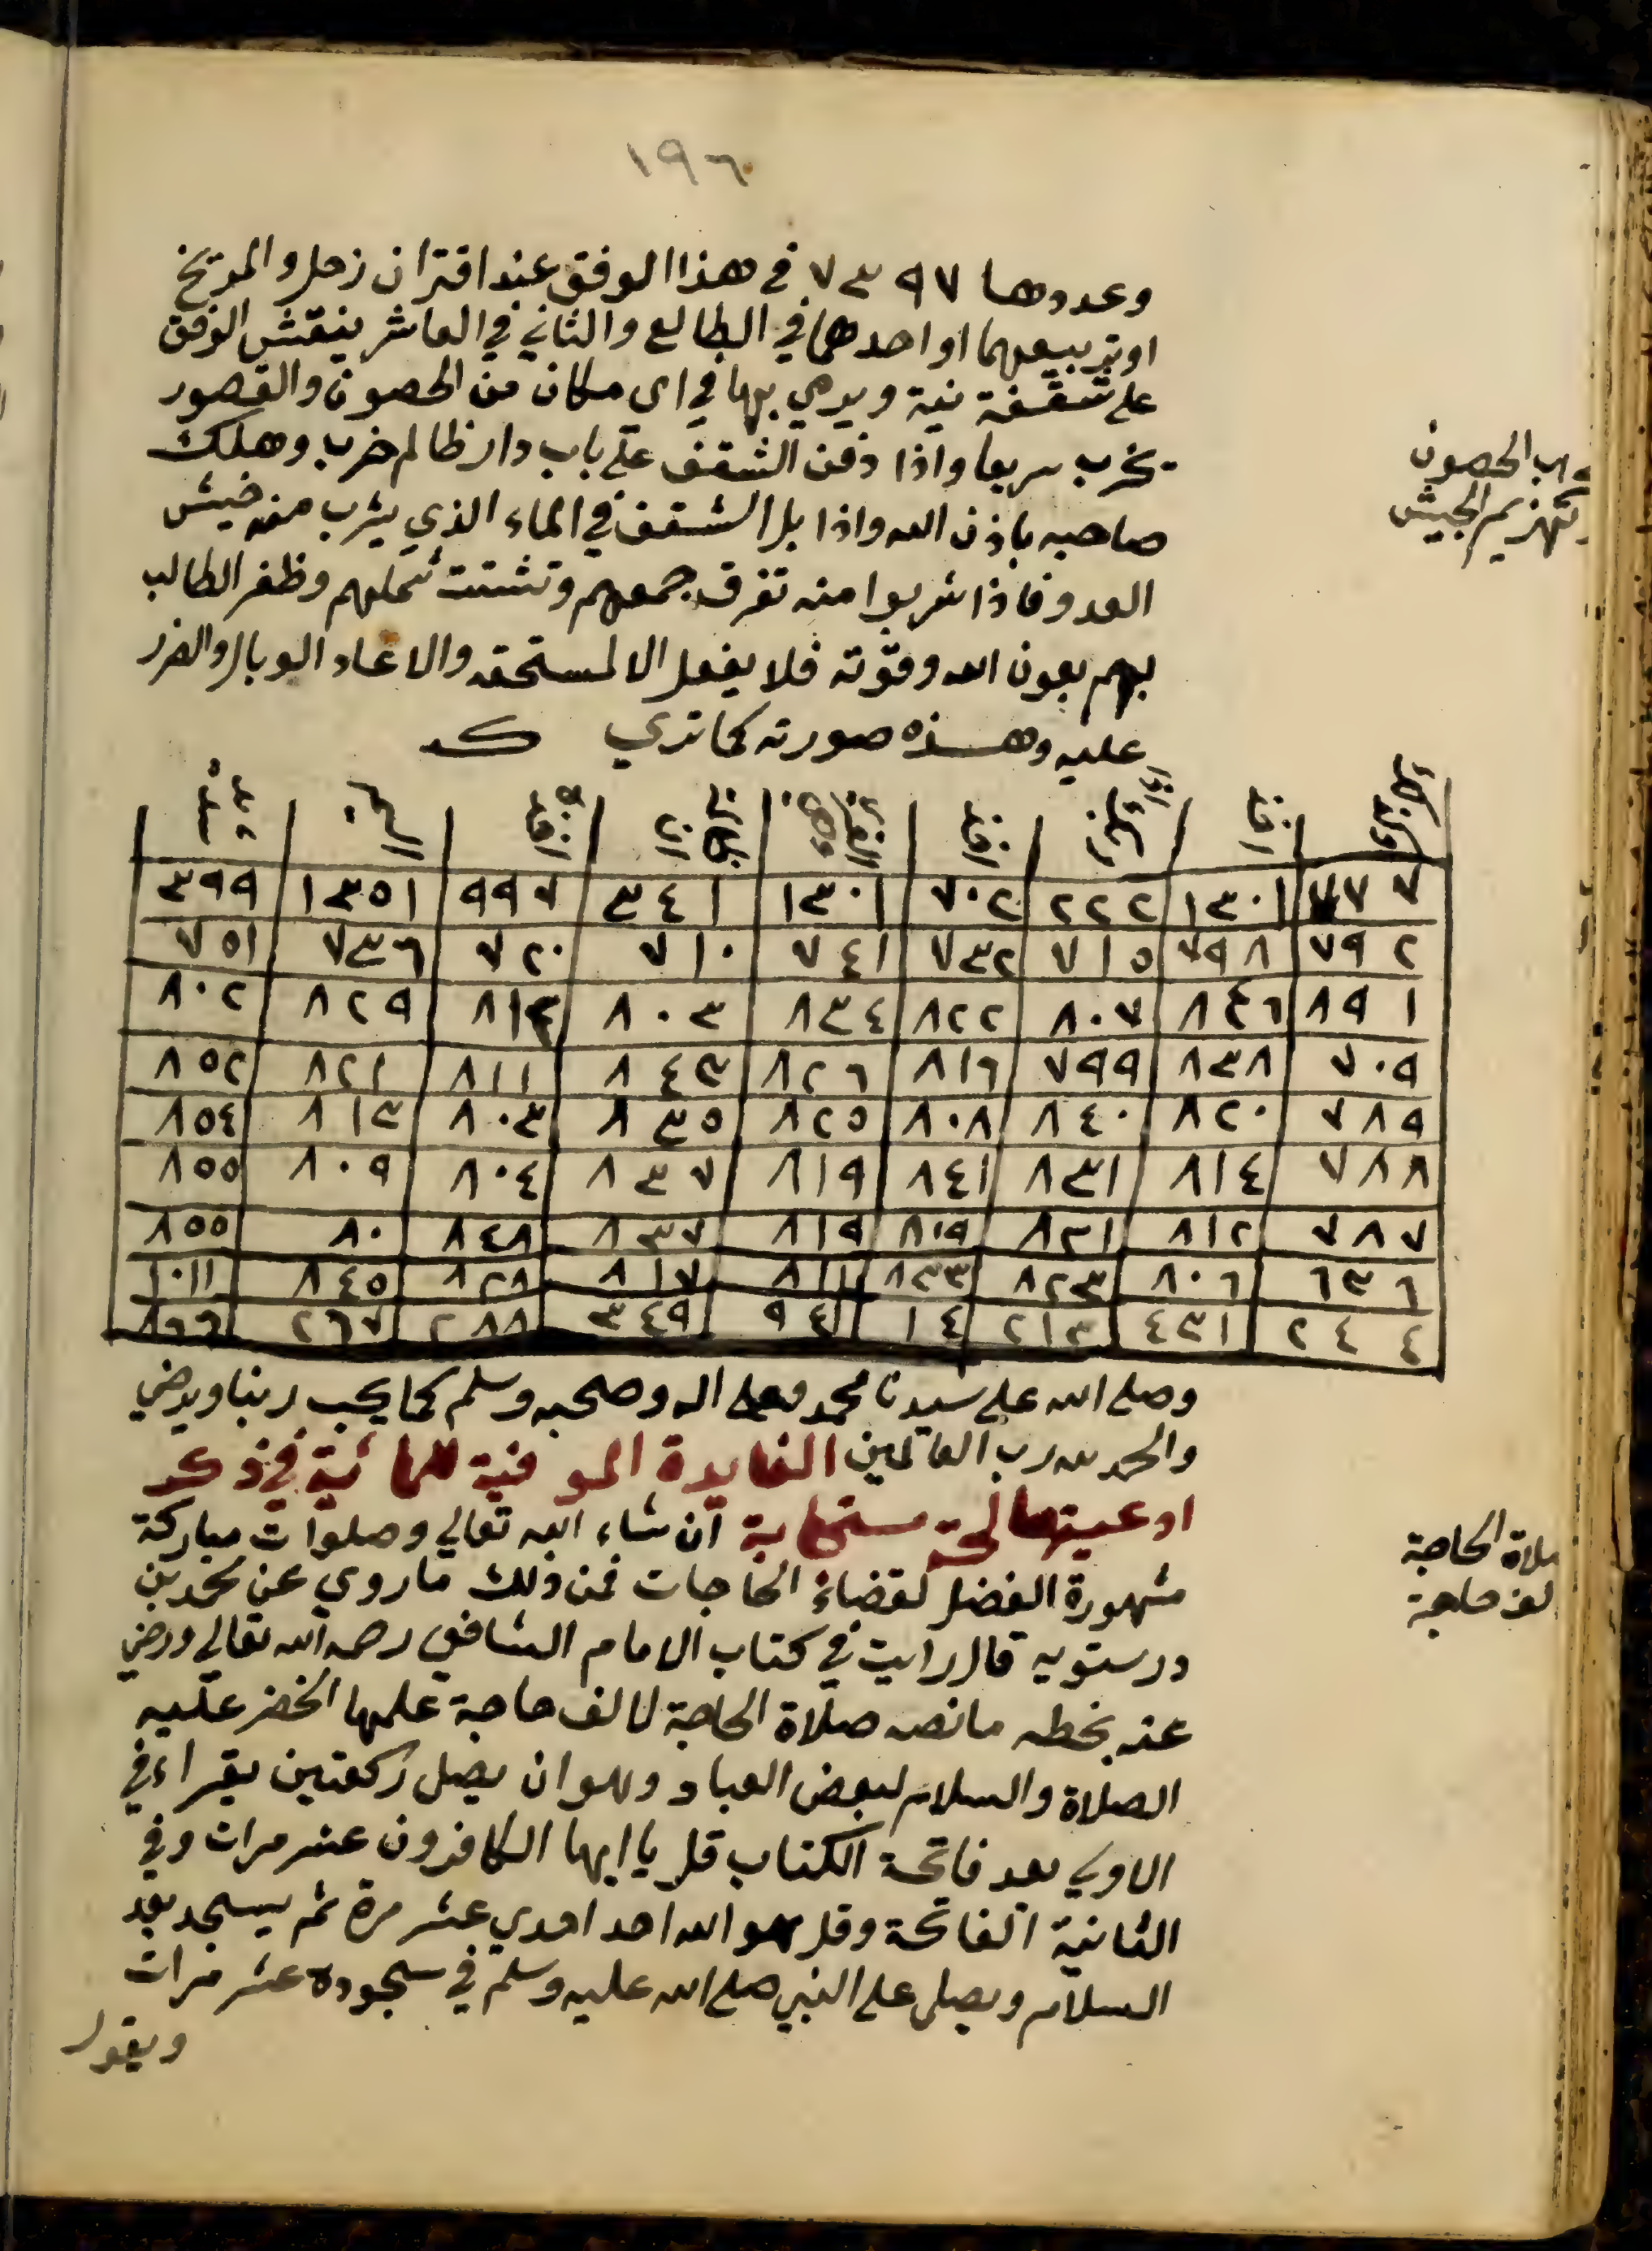 ١٩٦
وعددها ٧٣٩٧ في هذا الوفق عند اقتران زحل والمريخ
او تربيعهما او احدهما في الطالع والثاني في العاشر ينقش الوفق
على شقفة نية ويرمي بها في اي مكان من الحصون والقصور
يخرب سريعا واذا دفن الشقف على باب دار ظالم خرب وهلك
صاحبه باذن الله واذا بل الشقف في الماء الذي يشرب منه جيش
العدو فاذا شربوا منه تفرق جمعهم وتشتت شملهم وظفر الطالب
بهم بعون الله وقوته فلا يفعل الا لمستحقه والا عاد الوبال والضرر
عليه وهذه صورته كما تري
الحصون
الجيش
٧٧٧ ١٣٠١ ٢٢٢ ٧٠٢ ١٣٠١ ٣٤١ ٩٩٧ ١٣٥١ ٣٩٩
٧٩٢ ٧٩٨ ٧١٥ ٧٣٢ ٧٤١ ٧١٠ ٧٢٠ ٧٣٦ ٧٥١
٨٩١ ٨٤٦ ٨٠٧ ٨٢٢ ٨٣٤ ٨٠٣ ٨١٤ ٨٢٩ ٨٠٢
٧٠٩ ٨٣٨ ٧٩٩ ٨١٦ ٨٢٦ ٨٤٣ ٨١١ ٨٢١ ٨٥٢
٧٨٩ ٨٢٠ ٨٤٠ ٨٠٨ ٨٢٥ ٨٣٥ ٨٠٣ ٨١٣ ٨٥٤
٧٨٨ ٨١٤ ٨٣١ ٨٤١ ٨١٩ ٨٣٧ ٨٠٤ ٨٠٩ ٨٥٥
٧٨٧ ٨١٢ ٨٣١ ٨١٩ ٨١٩ ٨٣٧ ٨٤٨ ٨٠ ٨٥٥
٦٣٦ ٨٠٦ ٨٢٣ ٨٣٣ ٨١١ ٨١٧ ٨٢٨ ٨٤٥ ١٠١١
٢٤٤ ٤٣١ ٢١٣ ١٤ ٩٤ ٣٤٩ ٢٨٨ ٢٦٧ ٨٦٦
وصلى الله على سيدنا محمد وعلى اله وصحبه وسلم كما يحب ربنا ويرضي
والحمد لله رب العالمين الفايدة الموفية للمائية في ذكر
ادعيتها مستجابة ان شاء الله تعالي وصلوات مباركة
مشهورة الفضل لقضاء الحاجات فمن ذلك ما روي عن محمد بن
درستويه قال رايت في كتاب الامام الشافعي رحمه الله تعالي ورضي
عنه بخطه ما نصه صلاة الحاجة لالف حاجة علمها الخضر عليه
الصلاة والسلام لبعض العباد وهو ان يصل ركعتين يقراء في
الاولي بعد فاتحة الكتاب قل يا ايها الكافرون عشر مرات وفي
الثانية الفاتحة وقل هو الله احد احدي عشر مرة ثم يسجد بعد
السلام ويصلى على النبي صلى الله عليه وسلم في سجوده عشر مرات
ويقول
صلاة الحاجة
لالف حاجة